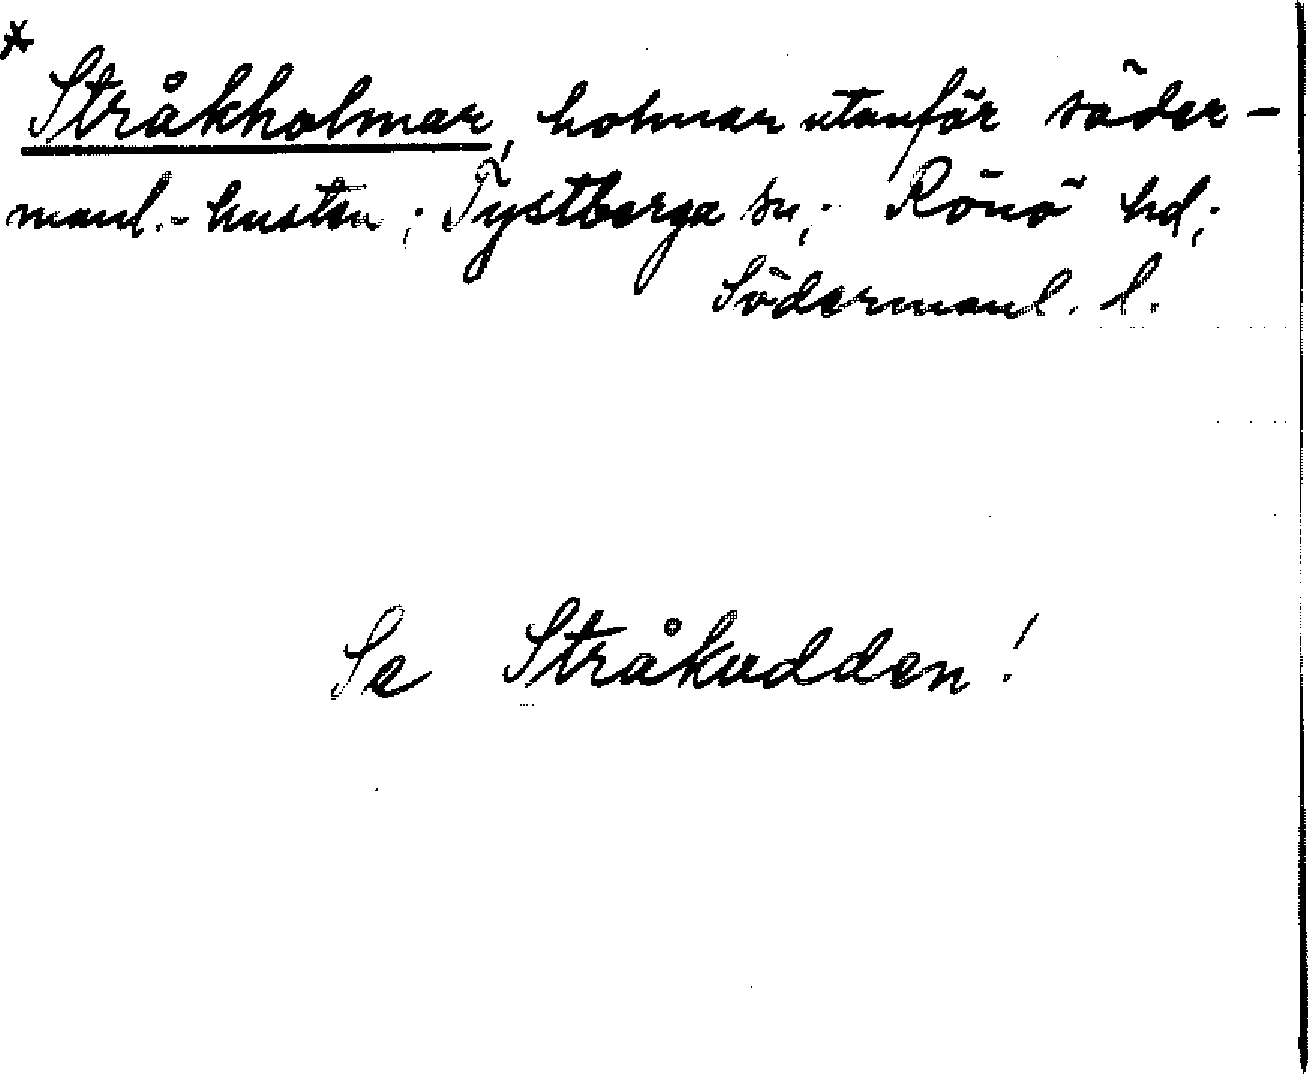 *
Stråkholmar, holmar utanför söder-
manl.-kusten; Tystberga sn; Rönö hd;
Södermanl. l.
Se Stråkudden!